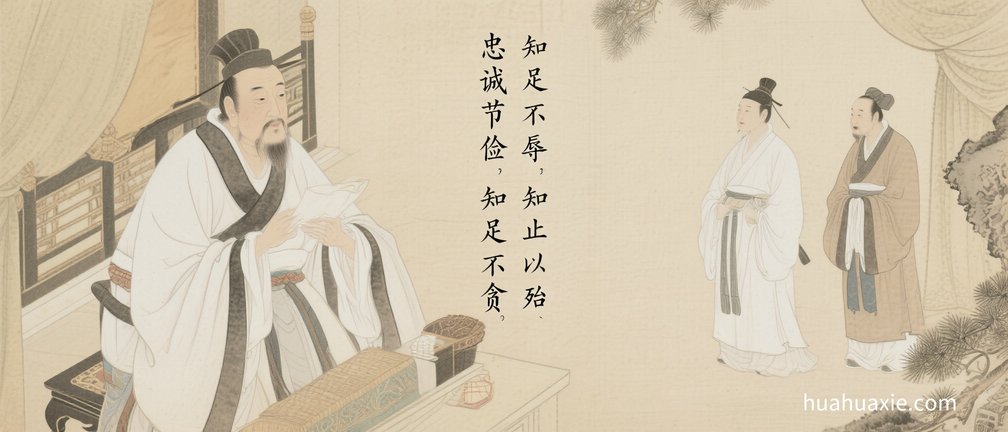 知足不辱，知止以殆、
忠诚节俭，知足不贪。
huahuaxie.com